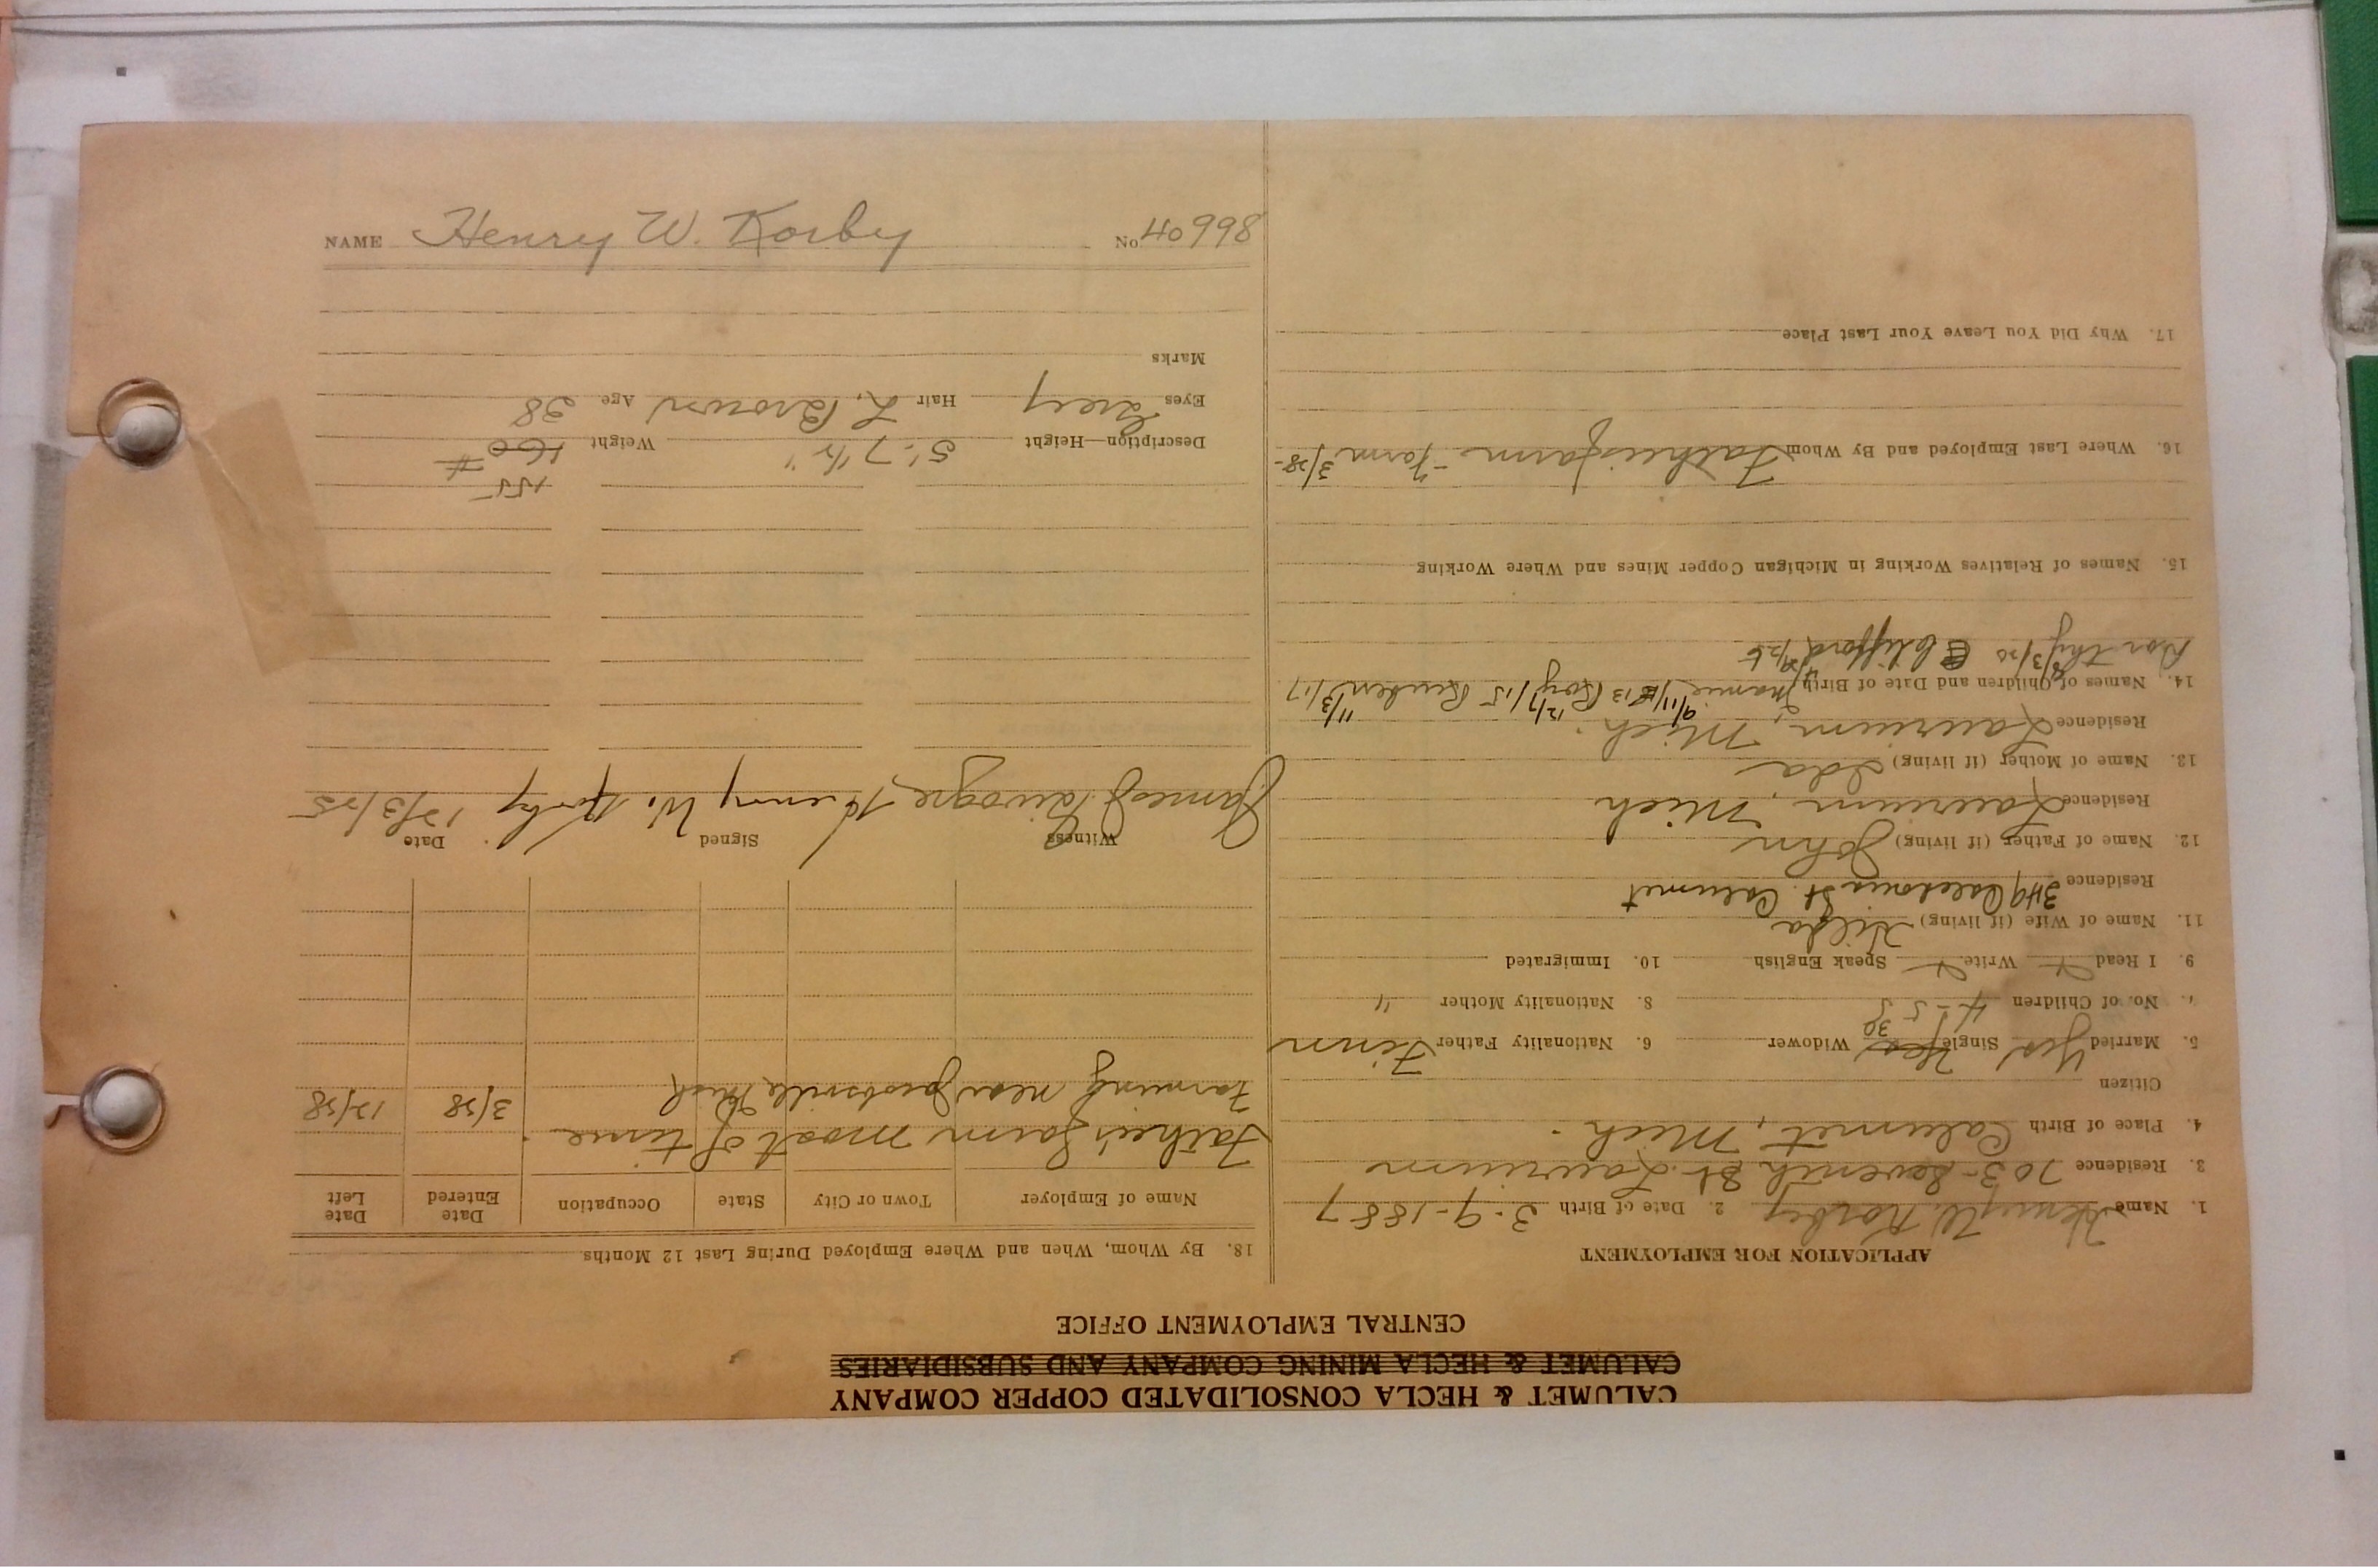 CALUMET & HECLA CONSOLIDATED COPPER COMPANY
CALUMET & HECLA MINING COMPANY AND SUBSIDIARIES
CENTRAL EMPLOYMENT OFFICE
APPLICATION FOR EMPLOYMENT
1. Name Henry W. Korby 2. Date of Birth 3-9-1887
3. Residence 703-Seventh St. Laurium
4. Place of Birth Calumet, Mich.
Citizen
5. Married Yes Single Yes Widower 6. Nationality Father Finn
No. of Children 4-5 8. Nationality Mother "
9. I Read Write Speak English 10. Immigrated
11. Name of Wife (if living) Hilda
Residence 349 Caledonia St. Calumet
12. Name of Father (if living) John
Residence Laurium, Mich
13. Name of Mother (if living) Ida
Residence Laurium, Mich.
14. Names of Children and Date of Birth Mamie 9/11/13 Roy 12/7/15 Reuben 11/3/17
Dorthy 8/3/20 Clifford
15. Names of Relatives Working in Michigan Copper Mines and Where Working
16. Where Last Employed and By Whom Fathers farm - Farm 3/28-
17. Why Did You Leave Your Last Place
18. By Whom, When and Where Employed During Last 12 Months
Name of Employer Town or City State Occupation Date Entered Date Left
Father's farm most of time.
Farming near Jacobsville Mich 3/28 12/28
Witness Signed Date
James Henry W. Korby 12/3/25
155
Description—Height 5'-7 1/2" Weight 160 #
Eyes Grey Hair L. Brown Age 38
Marks
NAME Henry W. Korby No. 40998